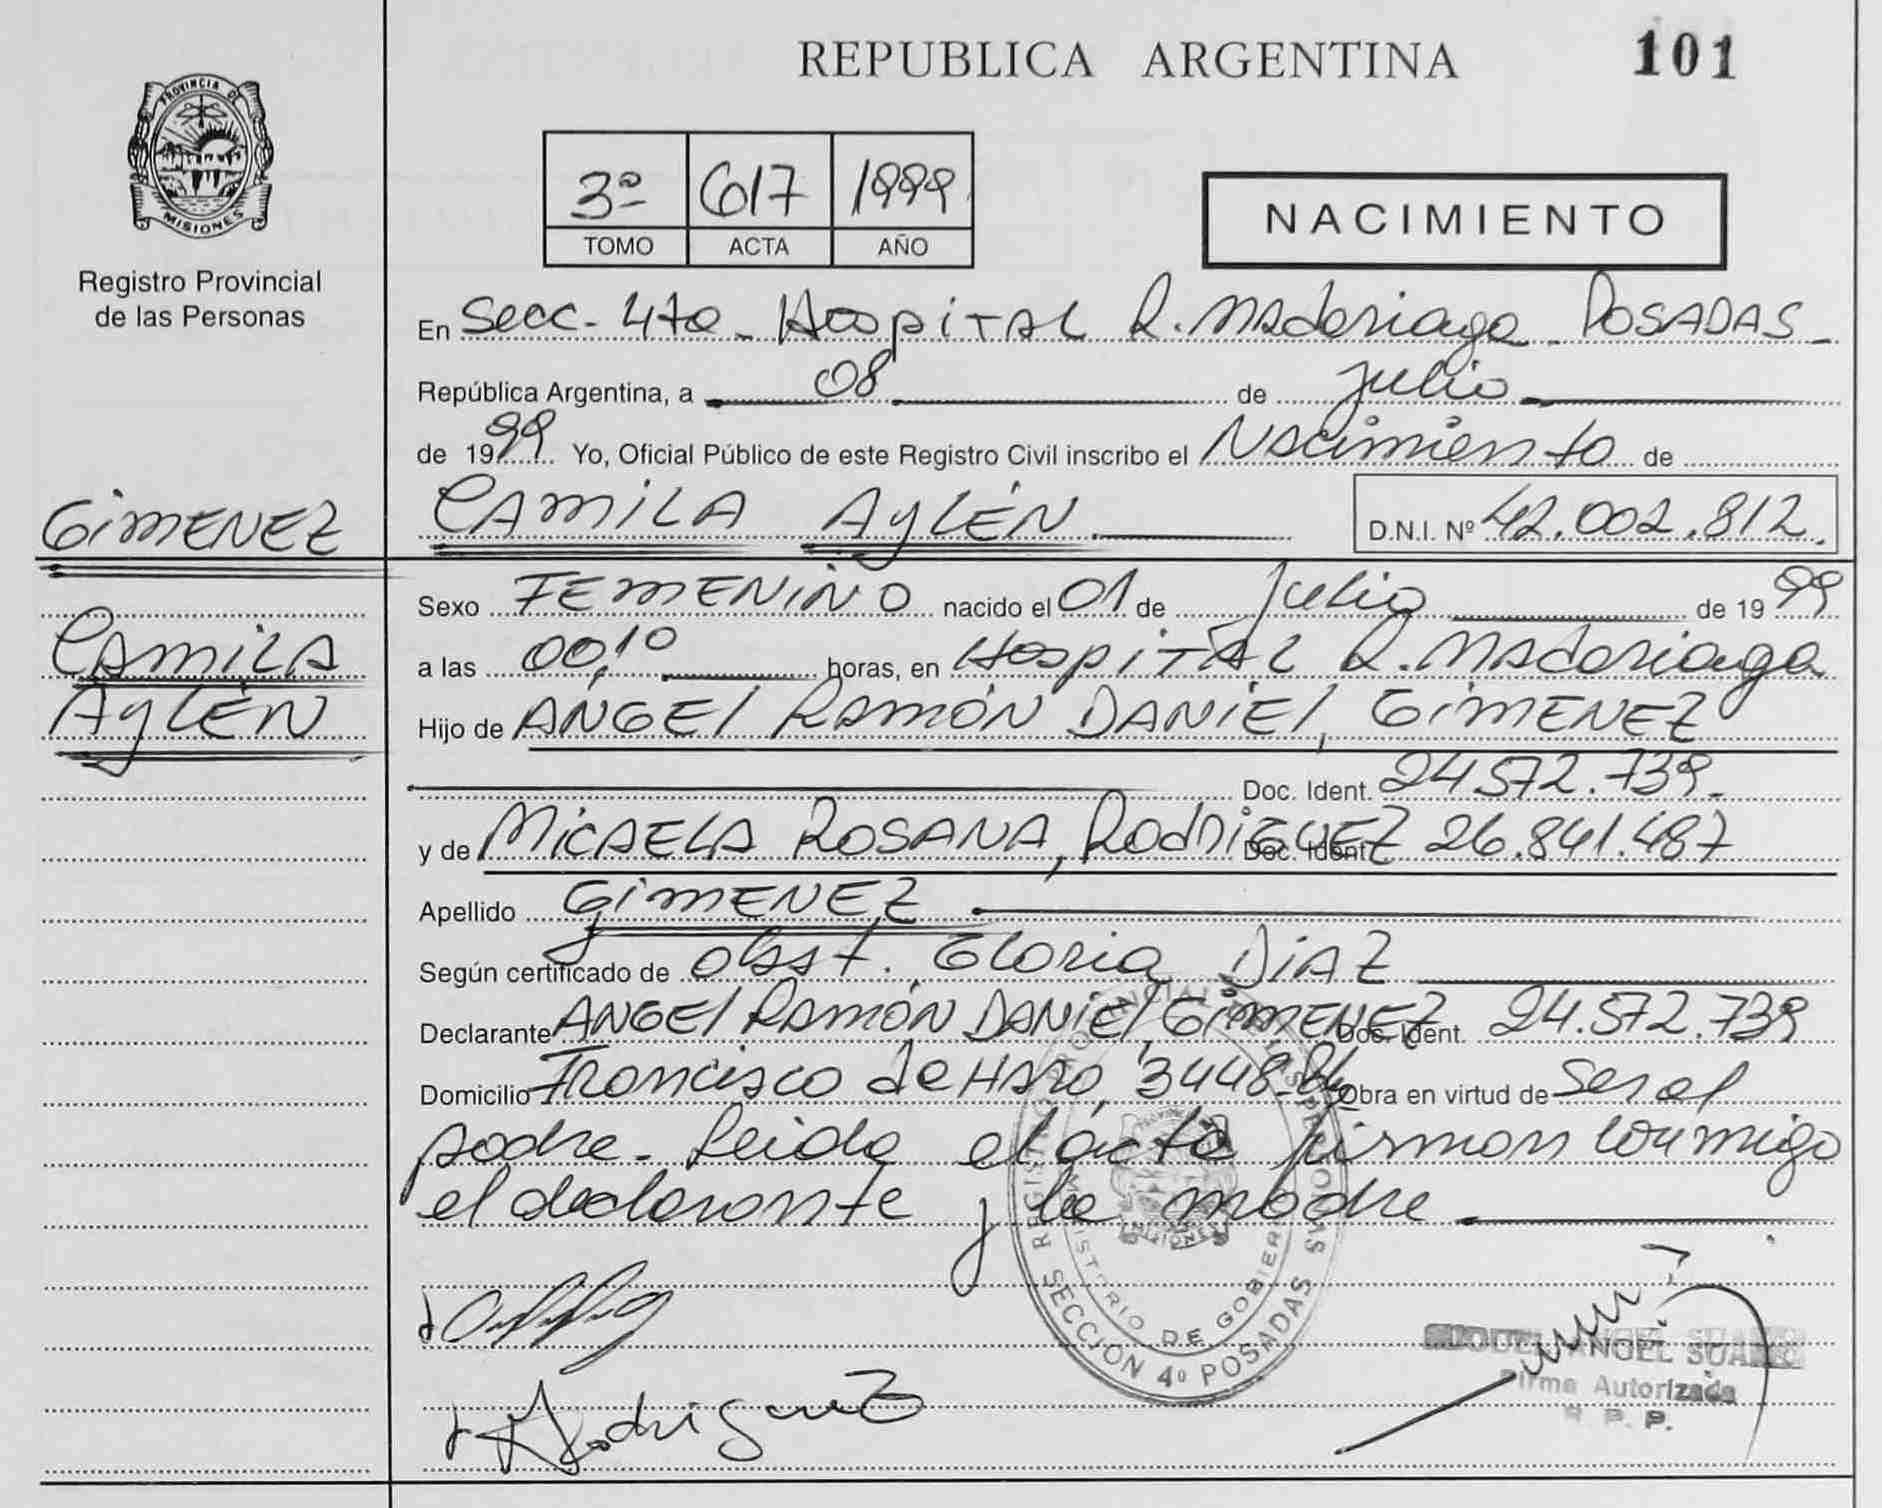 REPUBLICA ARGENTINA
101
PROVINCIA DE
MISIONES
Registro Provincial
de las Personas
3º 617 1999
TOMO ACTA AÑO
NACIMIENTO
En Secc. 4ta - Hospital R. Madariaga - POSADAS -
República Argentina, a 08 de julio
de 1999 Yo, Oficial Público de este Registro Civil inscribo el Nacimiento de
CAMILA AYLÉN D.N.I. Nº 42.002.812.
GIMENEZ
CAMILA
AYLÉN
Sexo FEMENINO nacido el 01 de Julio de 1999
a las 00,10 horas, en Hospital R. Madariaga
Hijo de ANGEL RAMÓN DANIEL, GIMENEZ
Doc. Ident. 24.572.739.
y de MICAELA ROSANA, RODRIGUEZ Doc. Ident. 26.841.487
Apellido GIMENEZ
Según certificado de Obst. Gloria DIAZ
Declarante ANGEL RAMÓN DANIEL GIMENEZ Doc. Ident. 24.572.739
Domicilio Francisco de Haro, 3448 Obra en virtud de Ser el
padre - Leida el acta firman conmigo
el declarante y la madre
REGISTRO PROVINCIAL DE LAS PERSONAS
MINISTERIO DE GOBIERNO
SECCION 4º POSADAS
MIGUEL ANGEL SUAREZ
Firma Autorizada
R. P. P.
Rodriguez